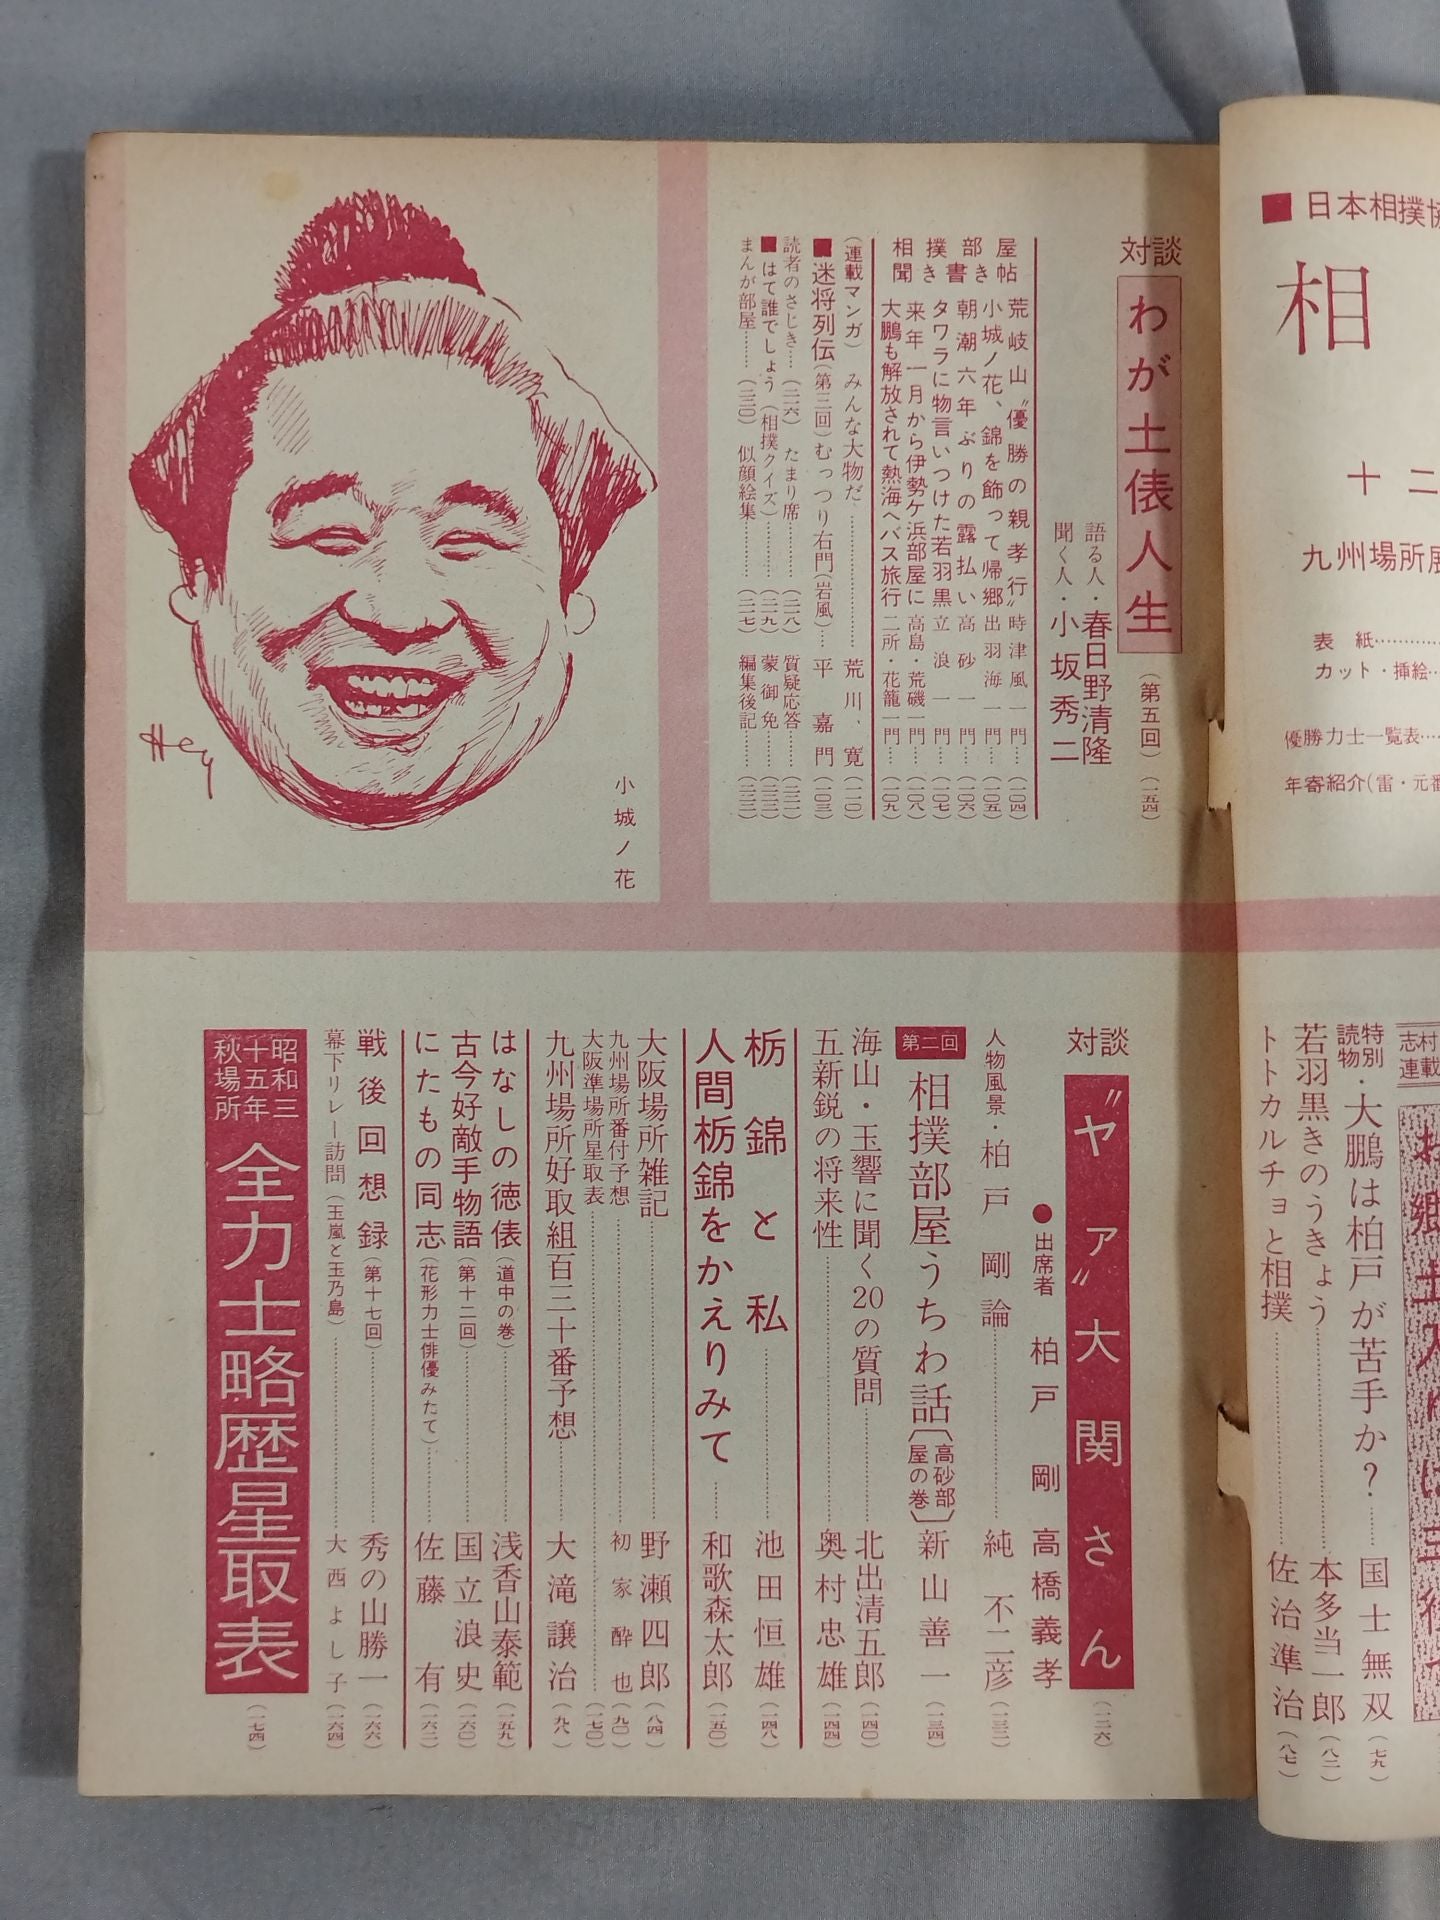 ■日本相撲協
相
十二
九州場所展
表紙
カット・挿絵
優勝力士一覧表
年寄紹介(雷・元番
志村
連載
特別読物・大鵬は柏戸が苦手か?……国士無双(七九)
若羽黒きのうきょう……本多当一郎(八二)
トトカルチョと相撲……佐治準治(八七)
対談 わが土俵人生(第五回)(一五四)
語る人・春日野清隆
聞く人・小坂秀二
相撲部屋聞き書き帖
荒岐山〝優勝の親孝行〟時津風一門…(一〇四)
小城ノ花、錦を飾って帰郷 出羽海一門…(一〇五)
朝潮六年ぶりの露払い 高砂一門…(一〇六)
タワラに物言いつけた若羽黒 立浪一門…(一〇七)
来年一月から伊勢ケ浜部屋に 高島・荒磯一門…(一〇八)
大鵬も解放されて熱海へバス旅行 二所・花籠一門…(一〇九)
(連載マンガ) みんな大物だ……荒川、寛(一一〇)
■迷将列伝(第三回)むっつり右門(岩風)…平嘉門(一〇三)
読者のさじき…(二二六) たまり席……(二二八) 質疑応答……(二三一)
■はて誰でしょう(相撲クイズ)……(二二九) 蒙御免……(二三二)
まんが部屋……(二三〇) 似顔絵集……(二二七) 編集後記……(二三三)
小城ノ花
対談 〝ヤァ〟大関さん(一二六)
●出席者 柏戸剛 高橋義孝
人物風景・柏戸剛論……純不二彦(一三二)
第二回 相撲部屋うちわ話〔高砂部屋の巻〕新山善一(一三四)
海山・玉響に聞く20の質問……北出清五郎(一四〇)
五新鋭の将来性……奥村忠雄(一四四)
栃錦と私……池田恒雄(一四八)
人間栃錦をかえりみて……和歌森太郎(一五〇)
大阪場所雑記……野瀬四郎(八四)
九州場所番付予想……初家酔也(九〇)
大阪準場所星取表……(一七〇)
九州場所好取組百三十番予想……大滝譲治(九八)
はなしの徳俵(道中の巻)……浅香山泰範(一五九)
古今好敵手物語(第十二回)……国立浪史(一六〇)
にたもの同志(花形力士俳優みたて)…佐藤有(一六二)
戦後回想録(第十七回)……秀の山勝一(一六六)
幕下リレー訪問(玉嵐と玉乃島)……大西よし子(一六四)
昭和三十五年秋場所 全力士略歴星取表(一七四)